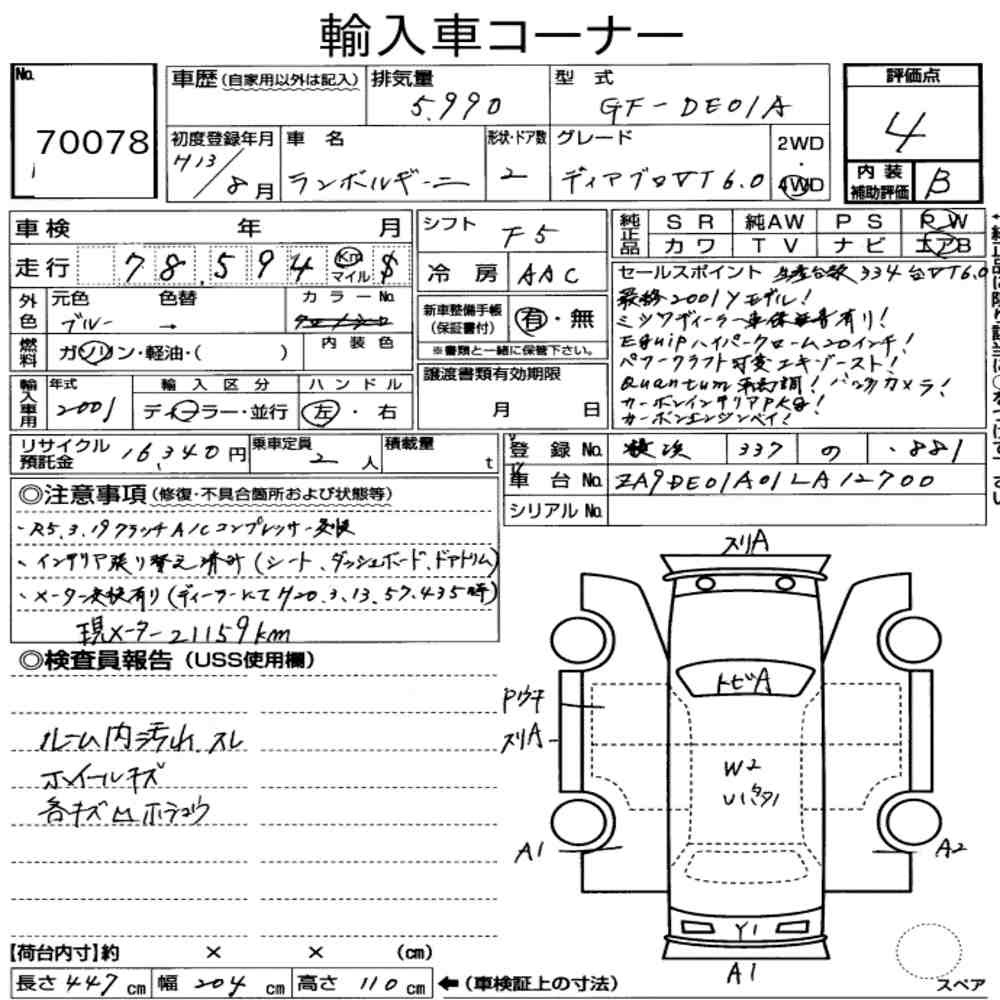 輸入車コーナー
No. 70078
車歴(自家用以外は記入) 排気量 5.990 型式 GF-DE01A 評価点 4
初度登録年月 H13/8月 車名 ランボルギーニ 形状・ドア数 2 グレード ディアブロVT6.0 2WD・4WD
内装補助評価 B
車検 年 月 シフト F5 純正品 SR 純AW PS PW
カワ TV ナビ エアB
走行 78,594 Km マイル $ 冷房 AAC
セールスポイント 生産台数334台VT6.0
最終2001Yモデル!
外色 元色 ブルー 色替 → カラーNo. 内装色
新車整備手帳(保証書付) 有・無
※書類と一緒に保管下さい。
ミツワディーラー車 有り!
Equipハイパークローム20インチ!
パワークラフト可変エキゾースト!
Quantum車高調!バックカメラ!
カーボンインテリアPKg!
カーボンエンジンベイ!
燃料 ガソリン・軽油・( )
輸入車用 年式 2001 輸入区分 ディーラー・並行 ハンドル 左・右
譲渡書類有効期限 月 日
リサイクル預託金 16,340円 乗車定員 2人 積載量 t
登録No. 横浜 337 の ・881
車台No. ZA9DE01A01LA12700
シリアルNo.
◎注意事項(修復・不具合箇所および状態等)
・R5.3.19クラッチA/Cコンプレッサー交換
・インテリア張り替え済み(シート、ダッシュボード、ドアトリム)
・メーター交換有り(ディーラーにてH20.3.13.57.435時)
現メーター21159km
◎検査員報告(USS使用欄)
ルーム内汚れ スレ
ホイールキズ
各キズ凹ホシュウ
スリA
トビA
Pウチ
スリA
W2
A1
A2
Y1
A1
スペア
【荷台内寸】約 × × (cm)
長さ 447cm 幅 204cm 高さ 110cm ←(車検証上の寸法)